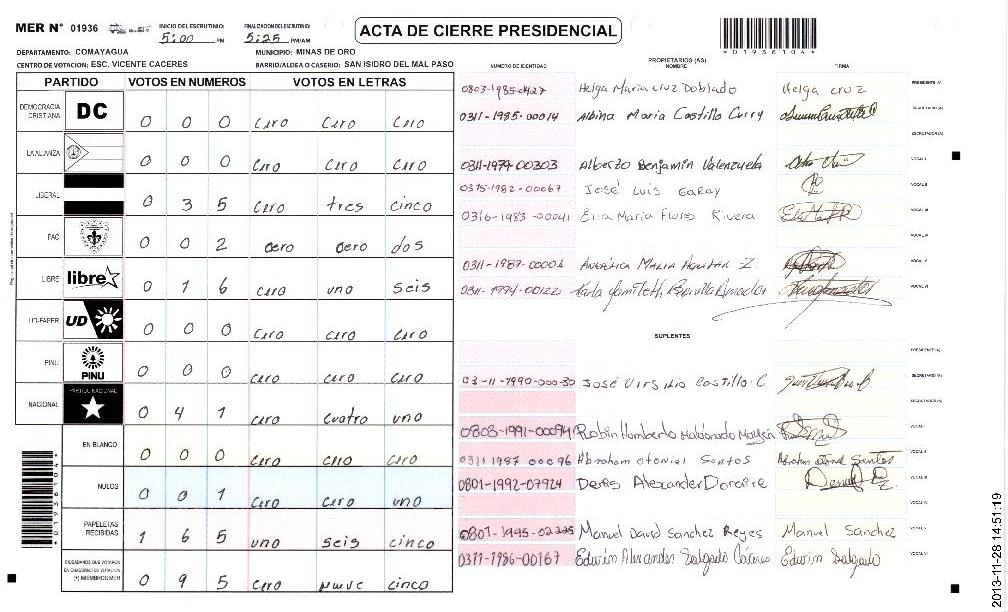 MER N° 01936 INICIO DEL ESCRUTINIO: 5:00 PM FINALIZACION DEL ESCRUTINIO: 5:25 PM/AM ACTA DE CIERRE PRESIDENCIAL *01936104*
DEPARTAMENTO: COMAYAGUA MUNICIPIO: MINAS DE ORO.
CENTRO DE VOTACION: ESC. VICENTE CACERES BARRIO/ALDEA O CASERIO: SAN ISIDRO DEL MAL PASO
PARTIDO VOTOS EN NUMEROS VOTOS EN LETRAS
DEMOCRACIA CRISTIANA DC 0 0 0 cero cero cero
LA ALIANZA 0 0 0 cero cero cero
LIBERAL 0 3 5 cero tres cinco
PAC 0 0 2 cero cero dos
LIBRE libre 0 1 6 cero uno seis
UD-FAPER UD 0 0 0 cero cero cero
PINU PINU 0 0 0 cero cero cero
NACIONAL PARTIDO NACIONAL 0 4 1 cero cuatro uno
EN BLANCO 0 0 0 cero cero cero
NULOS 0 0 1 cero cero uno
PAPELETAS RECIBIDAS 1 6 5 uno seis cinco
CIUDADANOS QUE VOTARON EN CUADERNO DE VOTACION (+) MIEMBROS MER 0 9 5 cero nueve cinco
*01936104*
PROPIETARIOS (AS)
NUMERO DE IDENTIDAD NOMBRE FIRMA
0803-1985-0427 Helga Maria Cruz Doblado Helga Cruz PRESIDENTE (A)
0311-1985-00014 Albina Maria Castillo Curry SECRETARIO (A)
ESCRUTADOR (A)
0311-1974-00303 Alberto Benjamin Valenzuela VOCAL I
0315-1982-00067 José Luis Garay VOCAL II
0316-1983-00041 Elia Maria Flores Rivera VOCAL III
VOCAL IV
0311-1987-00001 Angélica Maria Aguilar Z. VOCAL V
0311-1994-00122 Karla Yamileth VOCAL VI
SUPLENTES
PRESIDENTE (A)
03-11-1990-000-30 José Virgilio Castillo C SECRETARIO (A)
ESCRUTADOR (A)
0808-1991-00094 Robin Humberto Maldonado VOCAL I
0311 1987 00096 Abraham otoniel Santos Abraham otoniel Santos VOCAL II
0801-1992-07924 Denis Alexander VOCAL III
VOCAL IV
0801-1995-02225 Manuel David Sanchez Reyes Manuel Sanchez VOCAL V
0311-1986-00167 Edwin Alexander Salgado Cáceres Edwin Salgado VOCAL VI
2013-11-28 14:51:19